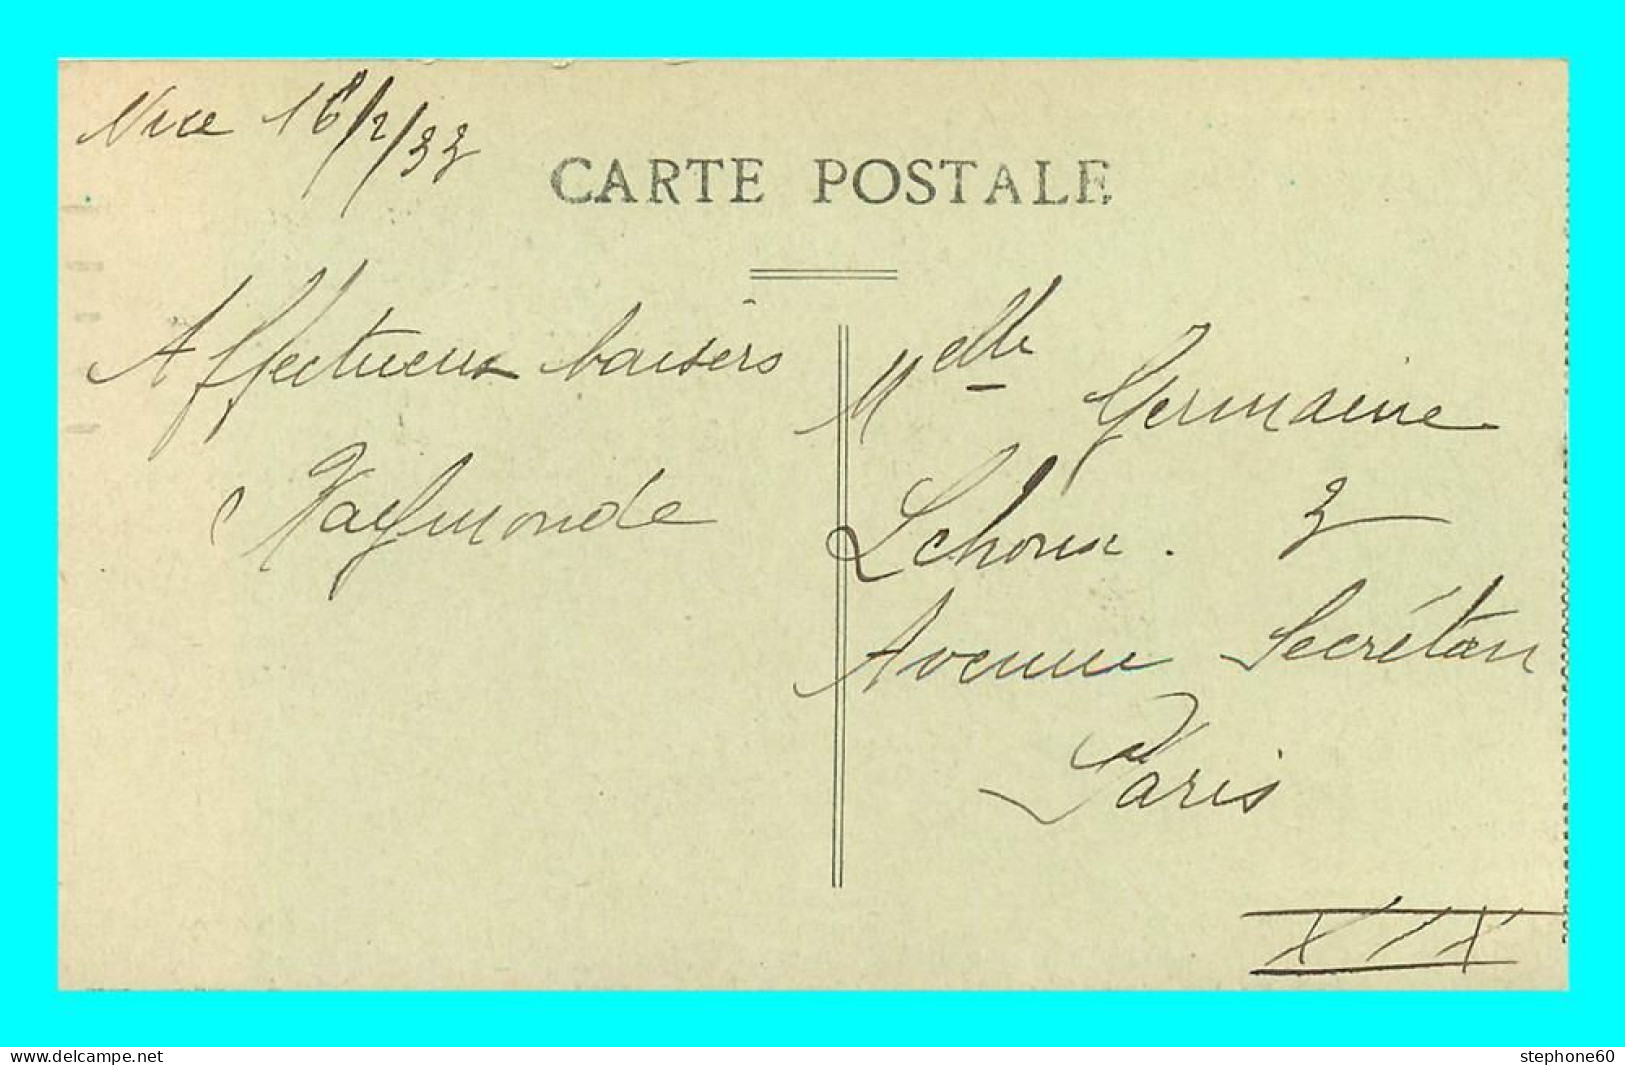 Nice 16/2/33
CARTE POSTALE
Affectueux baisers
Raymonde
Melle Germaine
Lchoux. 3
Avenue Secrétan
Paris
XIX
www.delcampe.net
stephone60